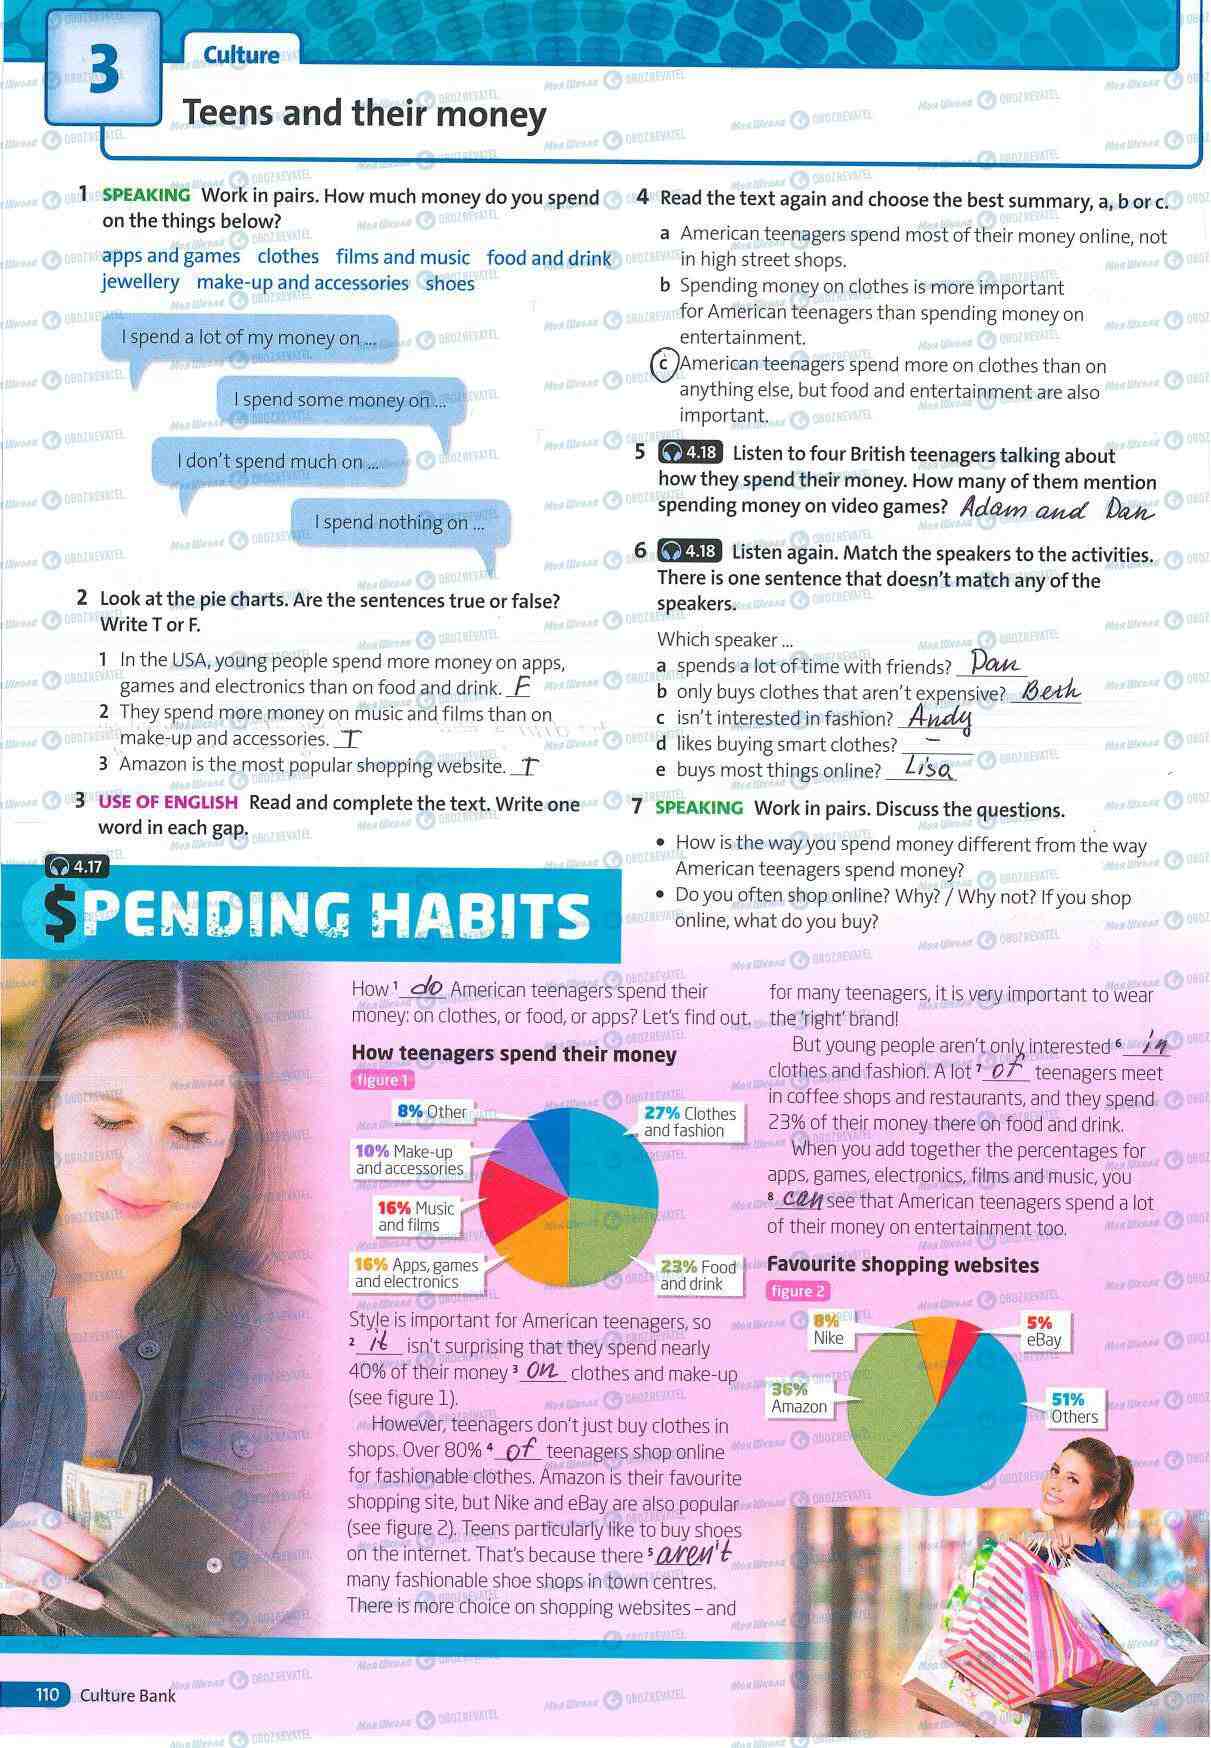 3
Culture
Teens and their money
1 SPEAKING Work in pairs. How much money do you spend
on the things below?
apps and games clothes films and music food and drink
jewellery make-up and accessories shoes
I spend a lot of my money on ...
I spend some money on ...
I don't spend much on ...
I spend nothing on ...
2 Look at the pie charts. Are the sentences true or false?
Write T or F.
1 In the USA, young people spend more money on apps,
games and electronics than on food and drink. F
2 They spend more money on music and films than on
make-up and accessories. T
3 Amazon is the most popular shopping website. T
3 USE OF ENGLISH Read and complete the text. Write one
word in each gap.
4 Read the text again and choose the best summary, a, b or c.
a American teenagers spend most of their money online, not
in high street shops.
b Spending money on clothes is more important
for American teenagers than spending money on
entertainment.
c American teenagers spend more on clothes than on
anything else, but food and entertainment are also
important.
5 4.18 Listen to four British teenagers talking about
how they spend their money. How many of them mention
spending money on video games? Adam and Dan
6 4.18 Listen again. Match the speakers to the activities.
There is one sentence that doesn't match any of the
speakers.
Which speaker ...
a spends a lot of time with friends? Dan
b only buys clothes that aren't expensive? Beth
c isn't interested in fashion? Andy
d likes buying smart clothes? –
e buys most things online? Lisa
7 SPEAKING Work in pairs. Discuss the questions.
• How is the way you spend money different from the way
American teenagers spend money?
• Do you often shop online? Why? / Why not? If you shop
online, what do you buy?
4.17
$PENDING HABITS
How 1 do American teenagers spend their
money: on clothes, or food, or apps? Let's find out.
How teenagers spend their money
figure 1
8% Other
27% Clothes
and fashion
10% Make-up
and accessories
16% Music
and films
16% Apps, games
and electronics
23% Food
and drink
Style is important for American teenagers, so
2 it isn't surprising that they spend nearly
40% of their money 3 on clothes and make-up
(see figure 1).
However, teenagers don't just buy clothes in
shops. Over 80% 4 of teenagers shop online
for fashionable clothes. Amazon is their favourite
shopping site, but Nike and eBay are also popular
(see figure 2). Teens particularly like to buy shoes
on the internet. That's because there 5 aren't
many fashionable shoe shops in town centres.
There is more choice on shopping websites – and
for many teenagers, it is very important to wear
the 'right' brand!
But young people aren't only interested 6 in
clothes and fashion. A lot 7 of teenagers meet
in coffee shops and restaurants, and they spend
23% of their money there on food and drink.
When you add together the percentages for
apps, games, electronics, films and music, you
8 can see that American teenagers spend a lot
of their money on entertainment too.
Favourite shopping websites
figure 2
8%
Nike
5%
eBay
36%
Amazon
51%
Others
110 Culture Bank
Моя Школа OBOZREVATEL